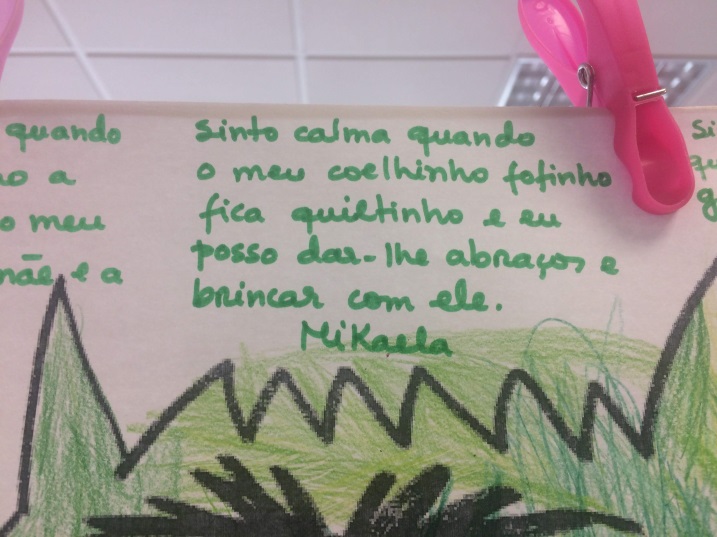 quando
o a
o meu
mãe e a
Sinto calma quando
o meu coelhinho fofinho
fica quietinho e eu
posso dar-lhe abraços e
brincar com ele.
Mikaela
Si
qu
g